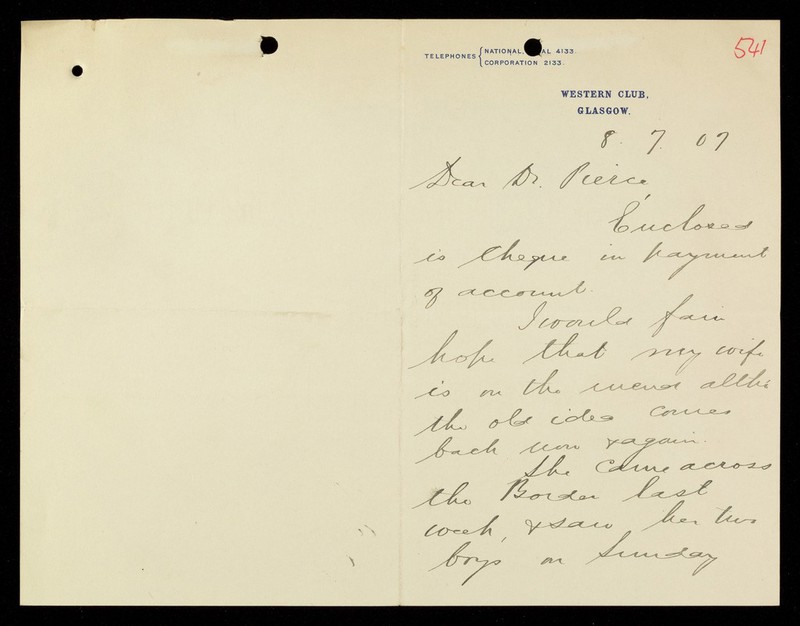 TELEPHONES { NATIONAL, AL 4133.
CORPORATION 2133.
541
WESTERN CLUB,
GLASGOW.
8. 7. 07
Dear Dr. Pierce,
Enclosed
is cheque in payment
of account.
I would fain
hope that my wife
is on the mend altho'
the old idea comes
back now & again.
She came across
the Border last
week, & saw her two
boys on Sunday